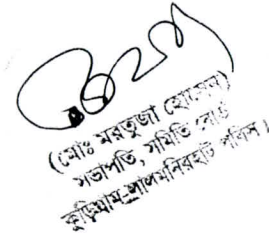 (মোঃ মরতুজা হোসেন)
সভাপতি, সমিতি বোর্ড
কুড়িগ্রাম-লালমনিরহাট পবিস।